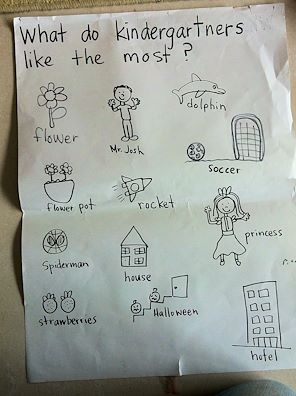 What do kindergartners
like the most?
flower
Mr. Josh
dolphin
soccer
flower pot
rocket
princess
Spiderman
house
strawberries
Halloween
hotel